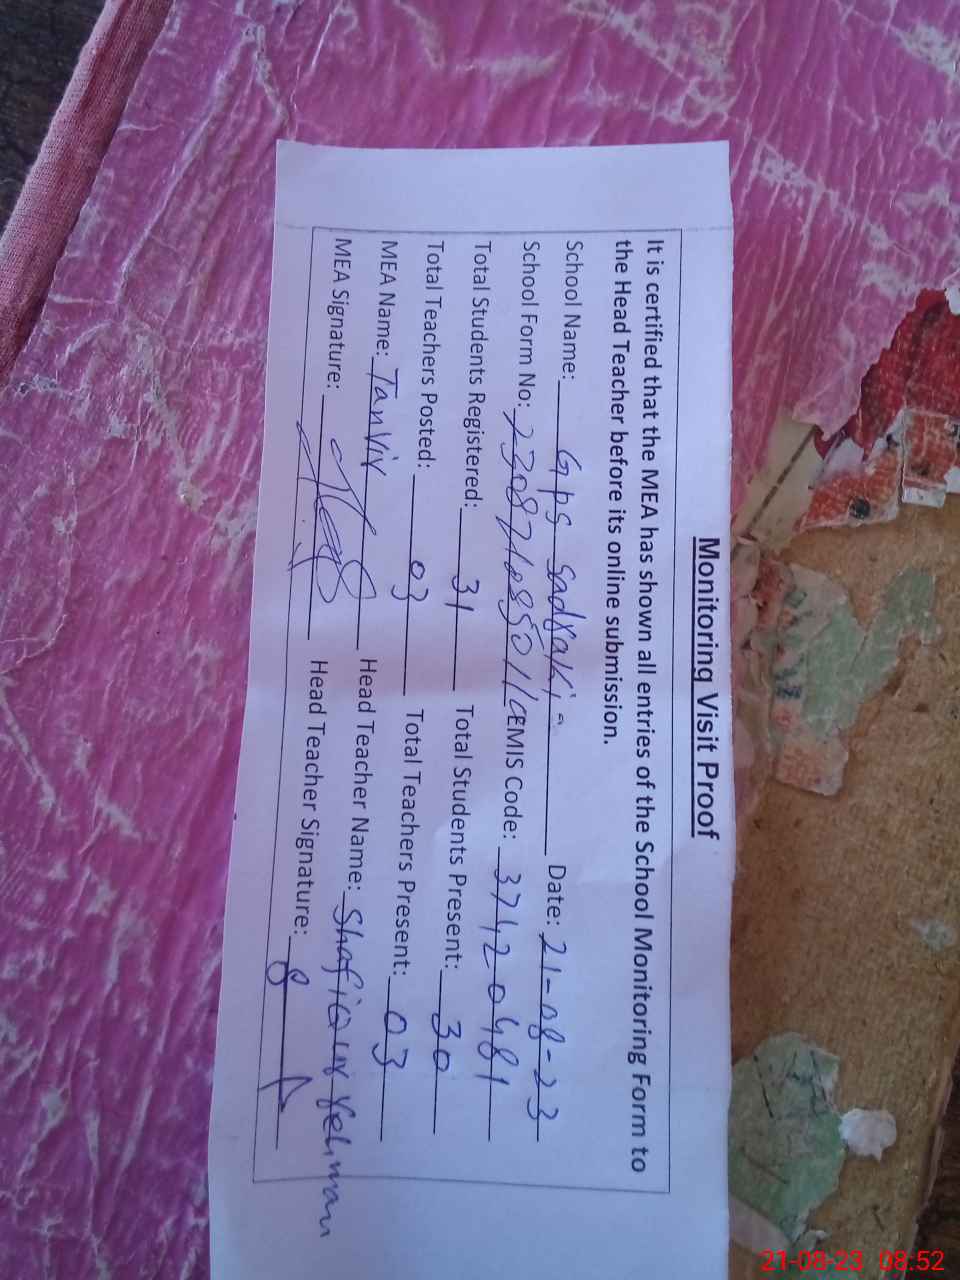 Monitoring Visit Proof
It is certified that the MEA has shown all entries of the School Monitoring Form to
the Head Teacher before its online submission.
School Name: Gps Sadraki Date: 21-08-23
School Form No: EMIS Code: 37420481
Total Students Registered: 31 Total Students Present: 30
Total Teachers Posted: 03 Total Teachers Present: 03
MEA Name: Tanvir Head Teacher Name: Shafiq ur Rehman
MEA Signature: Head Teacher Signature:
21-08-23 08:52